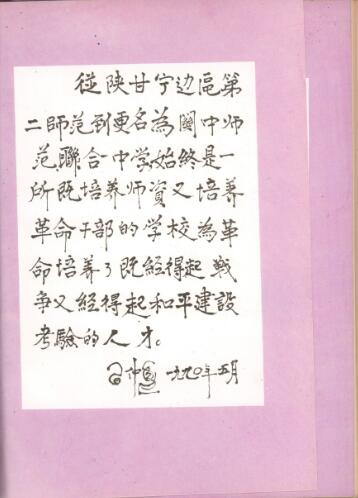 從陕甘宁边區第
二师范到更名為関中师
范聯合中学始終是一
所既培养师資又培养
革命干部的学校為革
命培养了既經得起战
争又經得起和平建設
考驗的人才。
习仲勋 一九九〇年五月